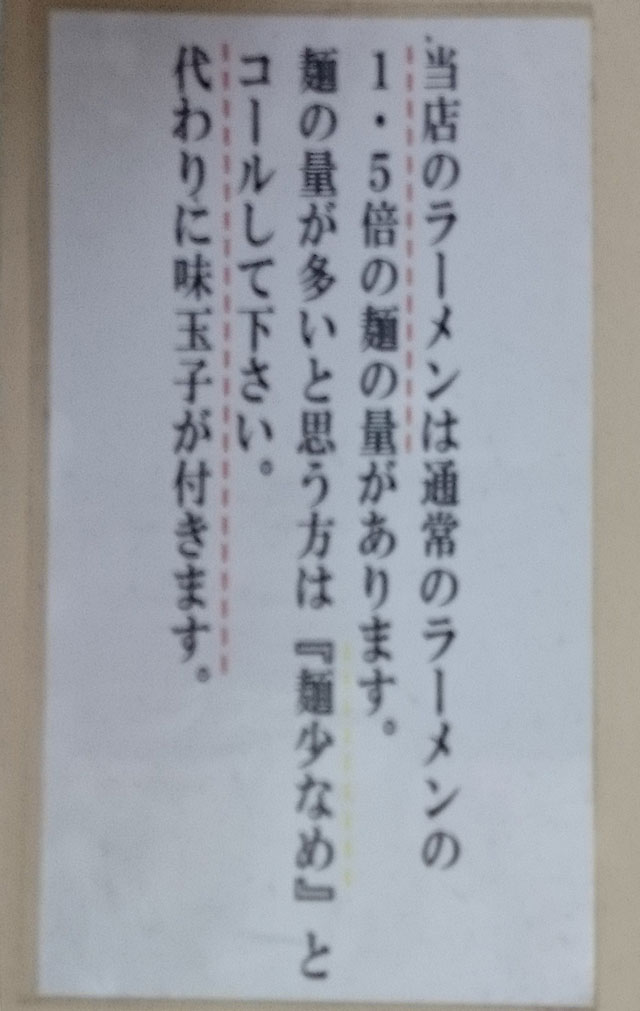 当店のラーメンは通常のラーメンの
1・5倍の麺の量があります。
麺の量が多いと思う方は『麺少なめ』と
コールして下さい。
代わりに味玉子が付きます。